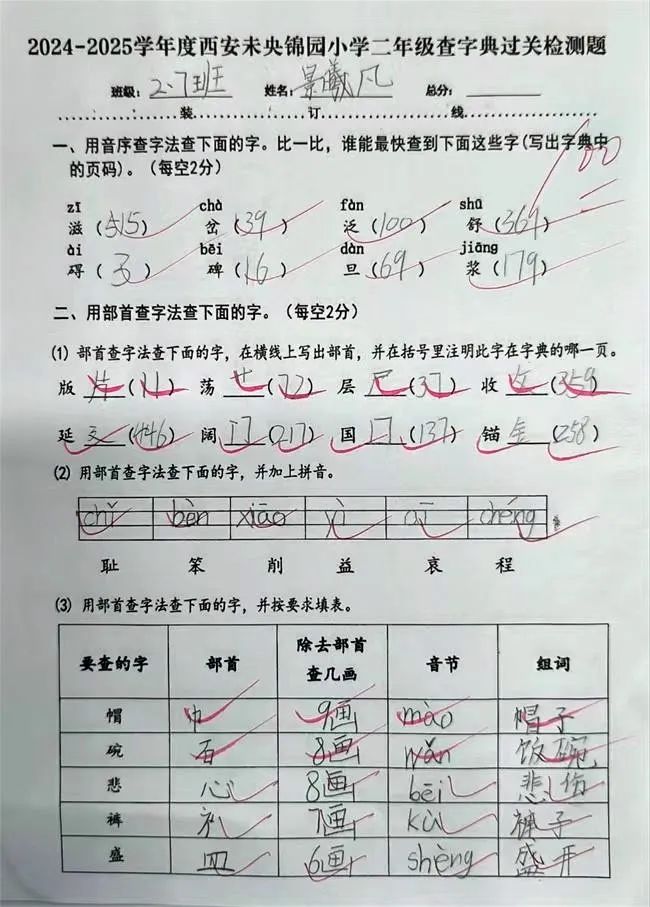 2024-2025学年度西安未央锦园小学二年级查字典过关检测题
班级：2.7班 姓名：景曦凡 总分：
装 订 线
一、用音序查字法查下面的字。比一比，谁能最快查到下面这些字(写出字典中
的页码)。(每空2分)
100
zī chà fàn shū
滋（515） 岔（39） 泛（100） 舒（369）
ài bēi dàn jiāng
碍（3） 碑（16） 旦（69） 浆（179）
二、用部首查字法查下面的字。(每空2分)
(1) 部首查字法查下面的字，在横线上写出部首，并在括号里注明此字在字典的哪一页。
版 片（11） 荡 艹（72） 层 尸（37） 收 攵（359）
延 廴（446） 阔 门（217） 国 囗（137） 锚 金（258）
(2) 用部首查字法查下面的字，并加上拼音。
chǐ bèn xiāo yì āi chéng
耻 笨 削 益 哀 程
(3) 用部首查字法查下面的字，并按要求填表。
要查的字 部首 除去部首查几画 音节 组词
帽 巾 9画 mào 帽子
碗 石 8画 wǎn 饭碗
悲 心 8画 bēi 悲伤
裤 衤 7画 kù 裤子
盛 皿 6画 shèng 盛开